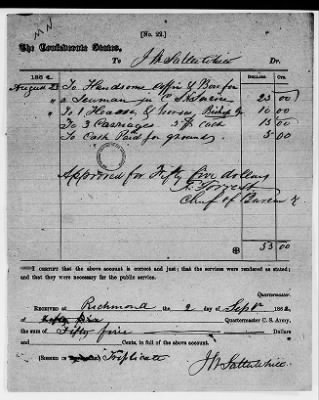 [No. 22.]
The Confederate States,
To J W Satterwhite Dr.
DOLLARS. CTS.
August 23 To Handsome Coffin & Box for
" a Seaman in C S Service 25 00
" To 1 Hearse & 10 00
" To 3 Carriages 5 Each 15 00
" To Cash Paid for ground 5 00
Approved for Fifty five dollars
Forrest
Chief of Bureau
55 00
I CERTIFY that the above account is correct and just; that the services were rendered as stated;
and that they were necessary for the public service.
Quartermaster.
RECEIVED at Richmond the 2 day of Sept 186
of Quartermaster C. S. Army,
the sum of Fifty five Dollars
and Cents, in full of the above account.
(SIGNED IN Triplicate J W Satterwhite